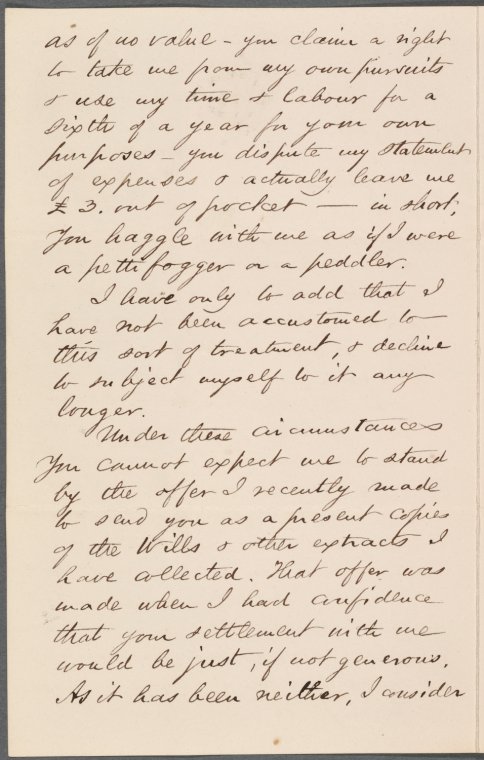 as of no value – you claim a right
to take me from my own pursuits
& use my time & labour for a
sixth of a year for your own
purposes – you dispute my statement
of expenses & actually leave me
£3. out of pocket — in short,
you haggle with me as if I were
a pettifogger or a peddler.
I have only to add that I
have not been accustomed to
this sort of treatment, & decline
to subject myself to it any
longer.
Under these circumstances
you cannot expect me to stand
by the offer I recently made
to send you as a present copies
of the Wills & other extracts I
have collected. That offer was
made when I had confidence
that your settlement with me
would be just, if not generous.
As it has been neither, I consider